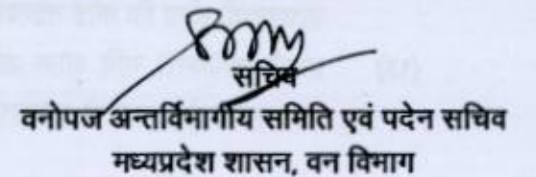 सचिव
वनोपज अन्तर्विभागीय समिति एवं पदेन सचिव
मध्यप्रदेश शासन, वन विभाग